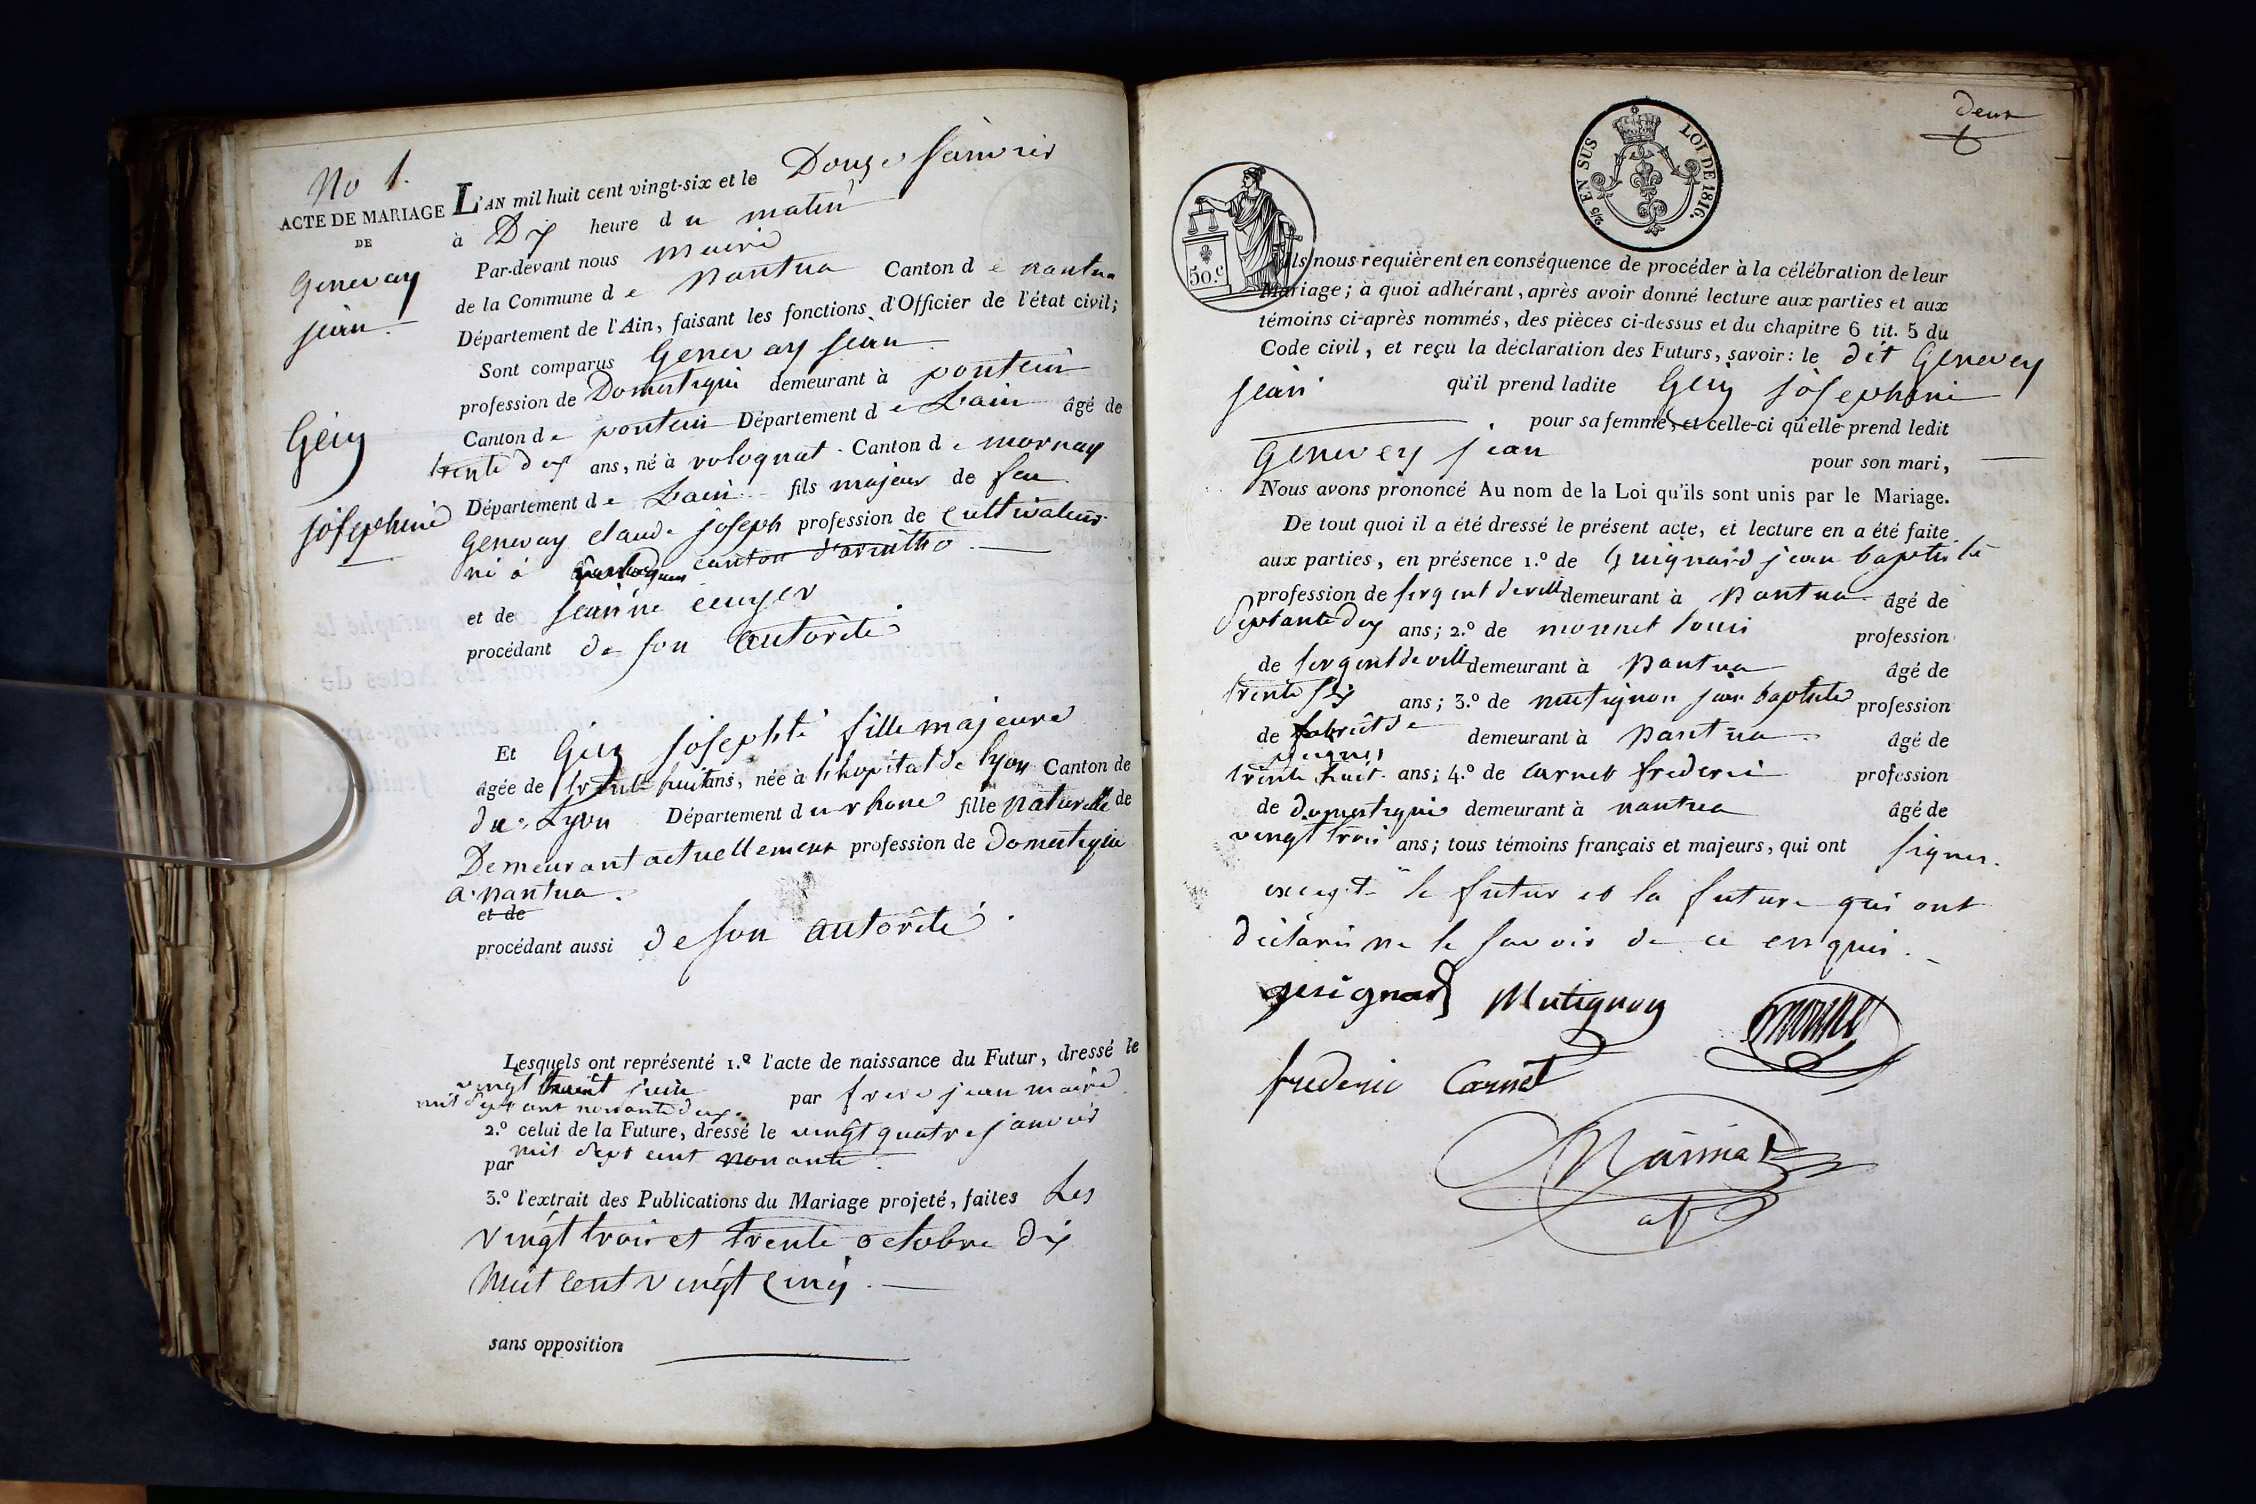 No 1.
ACTE DE MARIAGE
DE
Genevay
jean.
Géuy
joséphine
L'AN mil huit cent vingt-six et le Douze Janvier
à Dix heure du matin
Par-devant nous maire
de la Commune de Nantua Canton de nantua
Département de l'Ain, faisant les fonctions d'Officier de l'état civil;
Sont comparus Genevay jean
profession de Domestique demeurant à pontein
Canton de pontein Département de Lain âgé de
trente deux ans, né à volognat Canton de mornay
Département de Lain fils majeur de feu
Genevay claude joseph profession de Cultivateur
né à canton d'arintho
et de jeanne
procédant de son autorité
Et joséphte fille majeure
âgée de trente huit ans, née à lhopital de lyon Canton de
de Lyon Département du rhone fille naturelle de
Demeurant actuellement profession de Domestique
a nantua.
et de
procédant aussi de son autorité.
Lesquels ont représenté 1.º l'acte de naissance du Futur, dressé le
vingt huit juin
mil sept cent nonante deux par frere jean maire
2.º celui de la Future, dressé le vingt quatre janvier
par mil sept cent nonante
3.º l'extrait des Publications du Mariage projeté, faites Les
vingt trois et trente octobre dix
huit cent vingt cinq
sans opposition
deux
50.c
2/5 EN SUS LOI DE 1816.
Ils nous requièrent en conséquence de procéder à la célébration de leur
Mariage; à quoi adhérant, après avoir donné lecture aux parties et aux
témoins ci-après nommés, des pièces ci-dessus et du chapitre 6 tit. 5 du
Code civil, et reçu la déclaration des Futurs, savoir: le dit Genevey
jean qu'il prend ladite joséphine
pour sa femme, et celle-ci qu'elle prend ledit
Genevey jean pour son mari,
Nous avons prononcé Au nom de la Loi qu'ils sont unis par le Mariage.
De tout quoi il a été dressé le présent acte, et lecture en a été faite
aux parties, en présence 1.º de Guignard jean baptiste
profession de sergent de ville demeurant à Nantua âgé de
septante deux ans; 2.º de monnet louis profession
de sergent de ville demeurant à Nantua âgé de
trente six ans; 3.º de mutignon jean baptiste profession
de fabricant de peignes demeurant à Nantua âgé de
trente huit ans; 4.º de carnet frederic profession
de domestique demeurant à nantua âgé de
vingt trois ans; tous témoins français et majeurs, qui ont signer.
except le futur et la future qui ont
déclarés ne le savoir de ce enquis.
guignard Mutignon monnet
frederic Carnet